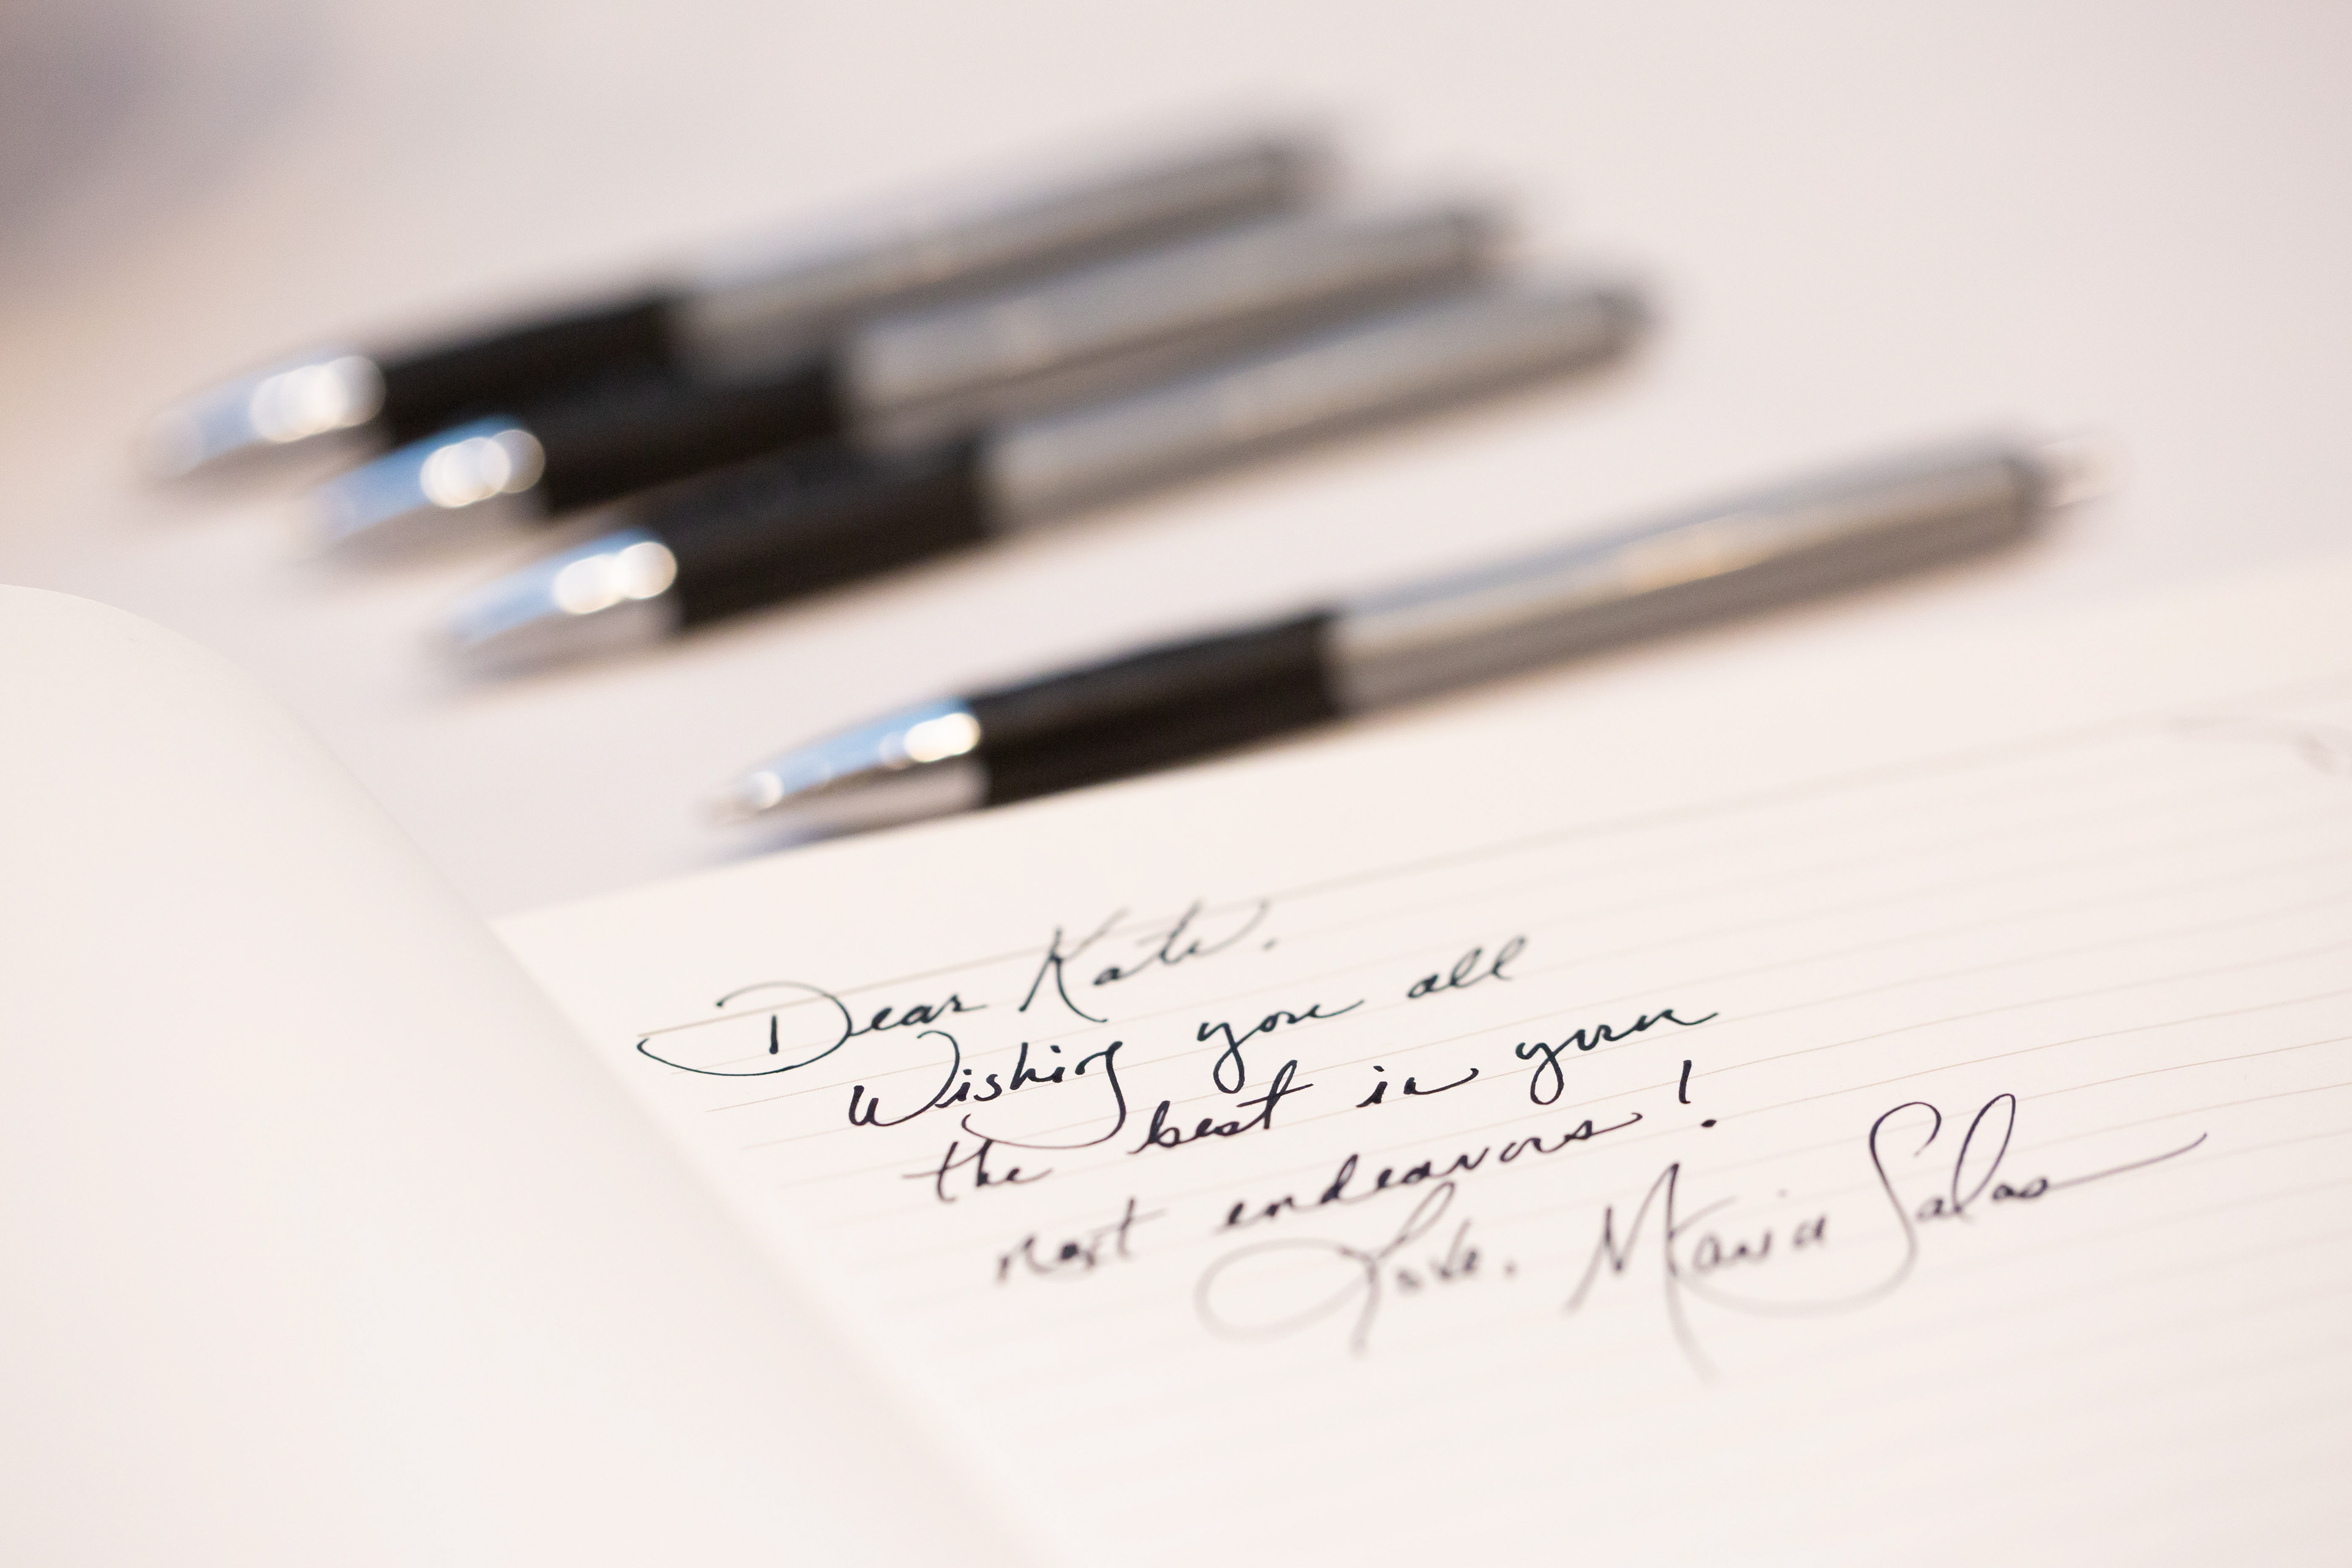 Dear Kate,
Wishing you all
the best in your
next endeavors!
Love, Maria Salas